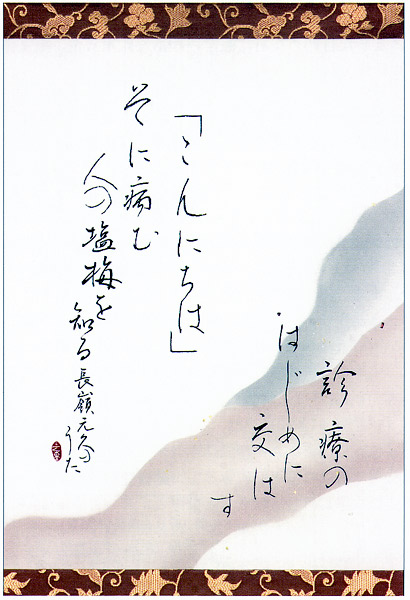 診療の
はじめに
交は
す
「こんにちは」
そに病む
人の塩梅を
知る 長嶺元久の
うた